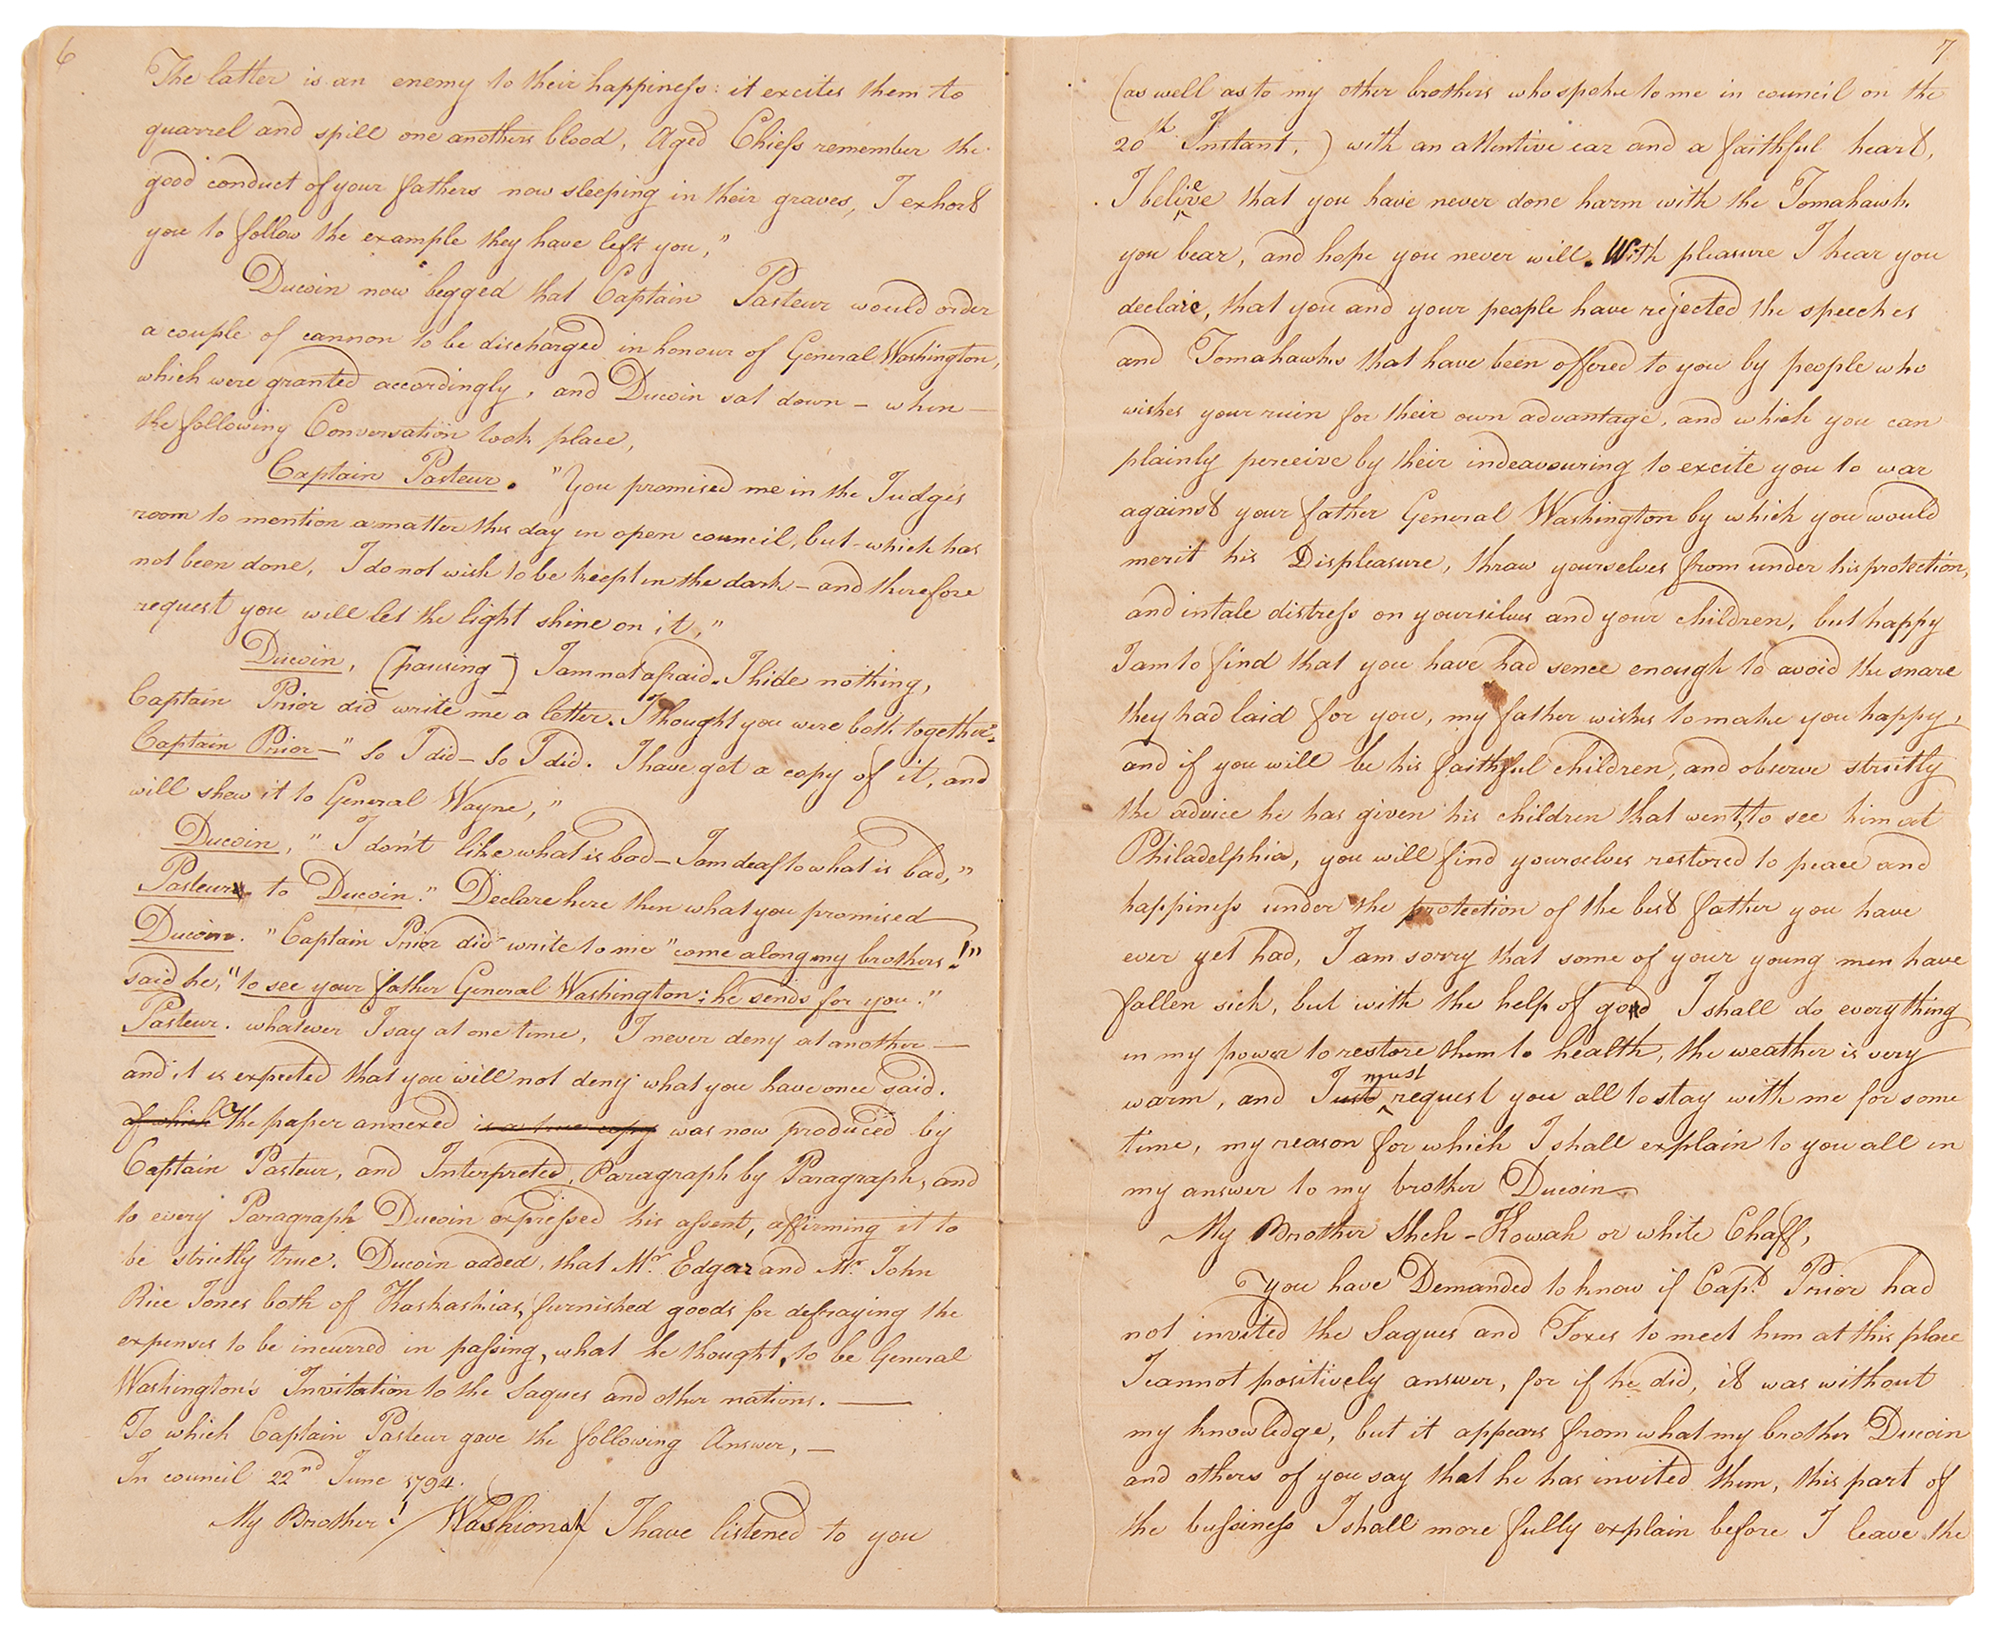 6
The latter is an enemy to their happiness: it excites them to
quarrel and spill one anothers blood, Aged Chiefs remember the
good conduct of your fathers now sleeping in their graves, I exhort
you to follow the example they have left you,"
Ducoin now begged that Captain Pasteur would order
a couple of cannon to be discharged in honour of General Washington,
which were granted accordingly, and Ducoin sat down – when –
the following Conversation took place,
Captain Pasteur. "You promised me in the Judge's
room to mention a matter this day in open council, but – which has
not been done, I do not wish to be keept in the dark – and therefore
request you will let the light shine on it,"
Ducoin, (pausing) I am not afraid. I hide nothing,
Captain Prior did write me a letter. I thought you were both together".
Captain Prior – " So I did – So I did. I have got a copy of it, and
will shew it to General Wayne,"
Ducoin, " I don't like what is bad – I am deaf to what is bad,"
Pasteur to Ducoin." Declare here then what you promised
Ducoin. "Captain Prior did write to me "come along my brothers!"
said he, "to see your father General Washington: he sends for you."
Pasteur. whatever I say at one time, I never deny at another –
and it is expected that you will not deny what you have once said.
of which The paper annexed is a true copy was now produced by
Captain Pasteur, and Interpreted, Paragraph by Paragraph, and
to every Paragraph Ducoin expressed his assent, affirming it to
be strictly true. Ducoin added, that Mr. Edgar and Mr. John
Rice Jones both of Kaskaskias, furnished goods for defraying the
expenses to be incurred in passing, what he thought, to be General
Washington's Invitation to the Saques and other nations. —
To which Captain Pasteur gave the following Answer, –
In council 22nd June 1794.
My Brother! / Washionah / I have listened to you
7
(as well as to my other brothers who spoke to me in council on the
20th Instant,) with an attentive ear and a faithful heart,
I believe that you have never done harm with the Tomahawk
you bear, and hope you never will. With pleasure I hear you
declare, that you and your people have rejected the speeches
and Tomahawks that have been offered to you by people who
wishes your ruin for their own advantage, and which you can
plainly perceive by their indeavouring to excite you to war
against your father General Washington by which you would
merit his Displeasure, thraw yourselves from under his protection,
and intale distress on yourselves and your children, but happy
I am to find that you have had sence enough to avoid the snare
they had laid for you, my father wishes to make you happy,
and if you will be his faithful children, and observe strictly
the advice he has given his children that went, to see him at
Philadelphia, you will find yourselves restored to peace and
happiness under the protection of the best father you have
ever yet had, I am sorry that some of your young men have
fallen sick, but with the help of god I shall do everything
in my power to restore them to health, the weather is very
warm, and I must request you all to stay with me for some
time, my reason for which I shall explain to you all in
my answer to my brother Ducoin.
My Brother Shck-Kowah or white Chaff,
You have Demanded to know if Capt. Prior had
not invited the Saques and Foxes to meet him at this place
I cannot positively answer, for if he did, it was without
my knowledge, but it appears from what my brother Ducoin
and others of you say that he has invited them, this part of
the bussiness I shall more fully explain before I leave the